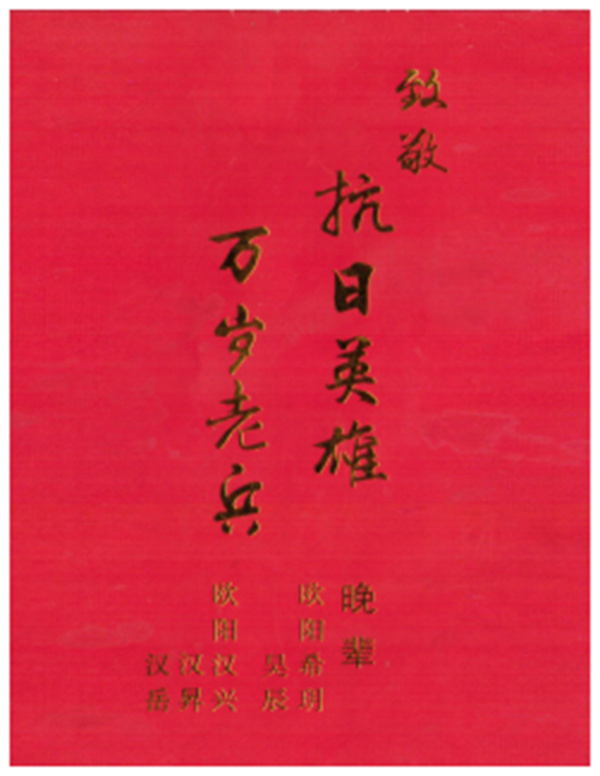 致敬
抗日英雄
万岁老兵
晚辈
欧阳希玥
昊辰
欧阳汉兴
汉昇
汉岳